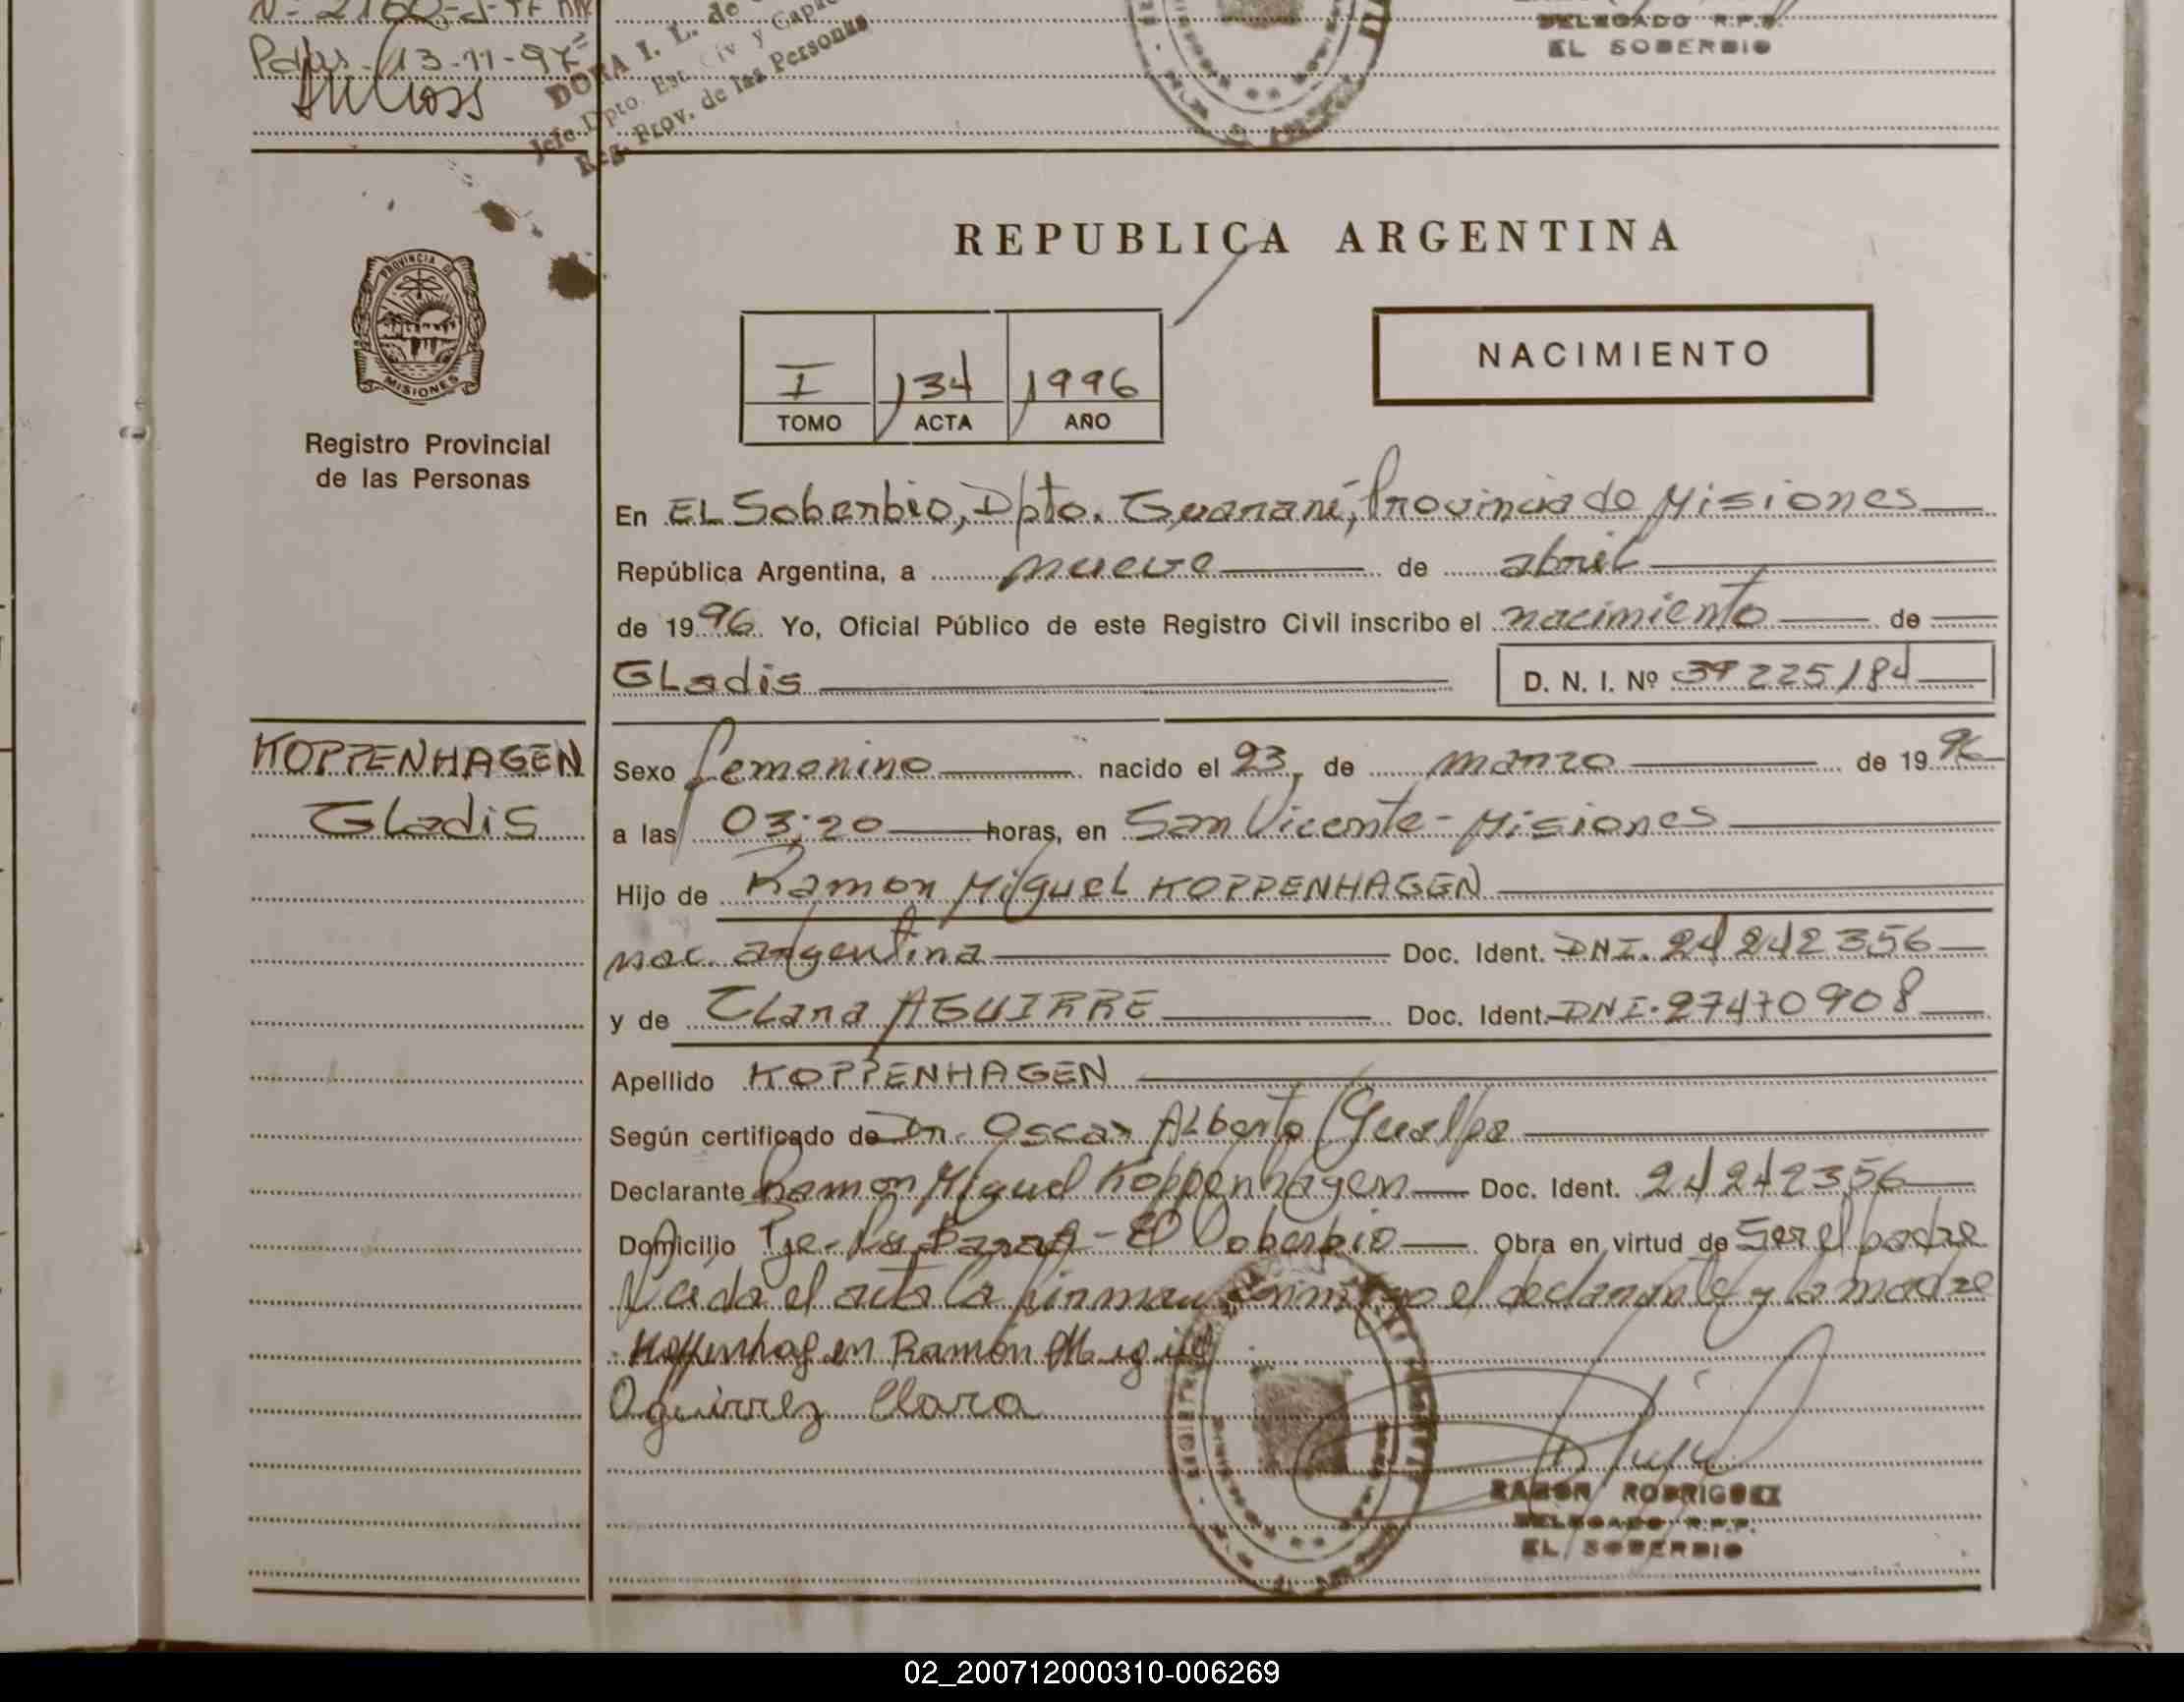 Pdas. 13-11-97
DORA I. L. de
Jefe Dpto. Est. Civ. y Capac
Reg. Prov. de las Personas
DELEGADO R.P.P.
EL SOBERBIO
REPUBLICA ARGENTINA
PROVINCIA DE
MISIONES
Registro Provincial
de las Personas
I 134 1996
TOMO ACTA AÑO
NACIMIENTO
En EL Soberbio, Dpto. Guaraní, Provincia de Misiones
República Argentina, a nueve de abril
de 1996 Yo, Oficial Público de este Registro Civil inscribo el nacimiento de
GLadis D. N. I. Nº 39 225184
KOPPENHAGEN
GLadis
Sexo femenino nacido el 23, de marzo de 1996
a las 03:20 horas, en San Vicente - Misiones
Hijo de Ramon Miguel KOPPENHAGEN
nac. argentina Doc. Ident. DNI. 24242356
y de CLara AGUIRRE Doc. Ident. DNI. 27470908
Apellido KOPPENHAGEN
Según certificado de Dr. Oscar ALberto Gualpa
Declarante Ramon Miguel Koppenhagen Doc. Ident. 24242356
Domicilio Pje. La Barra - El Soberbio Obra en virtud de Ser el padre
Leida el acta La firman conmigo el declarante y la madre
Koppenhagen Ramón Miguel
Aguirrez Clara
RAMON RODRIGUEZ
DELEGADO R.P.P.
EL SOBERBIO
02_200712000310-006269